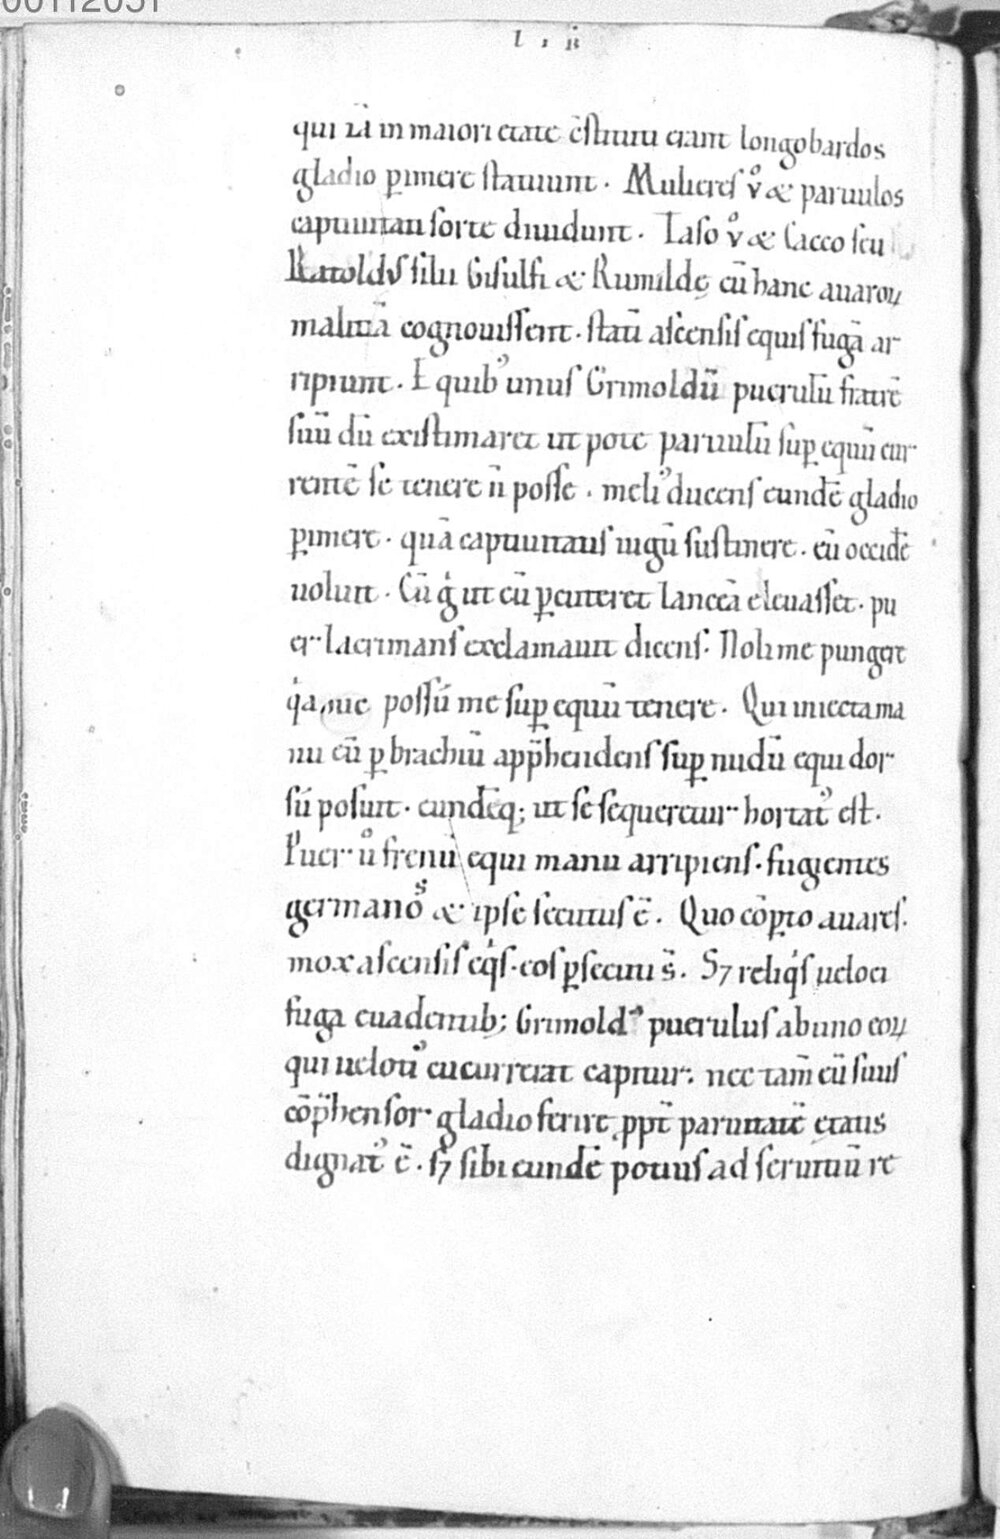 00112051
L I B̄
qui iā in maiori etate c̄stituti erant longobardos
gladio ꝑimere statuunt. Mulieres v̊ & paruulos
captiuitati sorte diuidunt. Taso v̊ & Cacco seu
Ratoldus filii Gisulfi & Rumildę cū hanc auaroꝝ
malitiā cognouissent. statī ascensis equis fugā ar
ripiunt. E quibꝰ unus Grimoldū puerulū fratrē
suū dū existimaret ut pote paruulū suꝑ equū cur
rentē se tenere n̄ posse. meliꝰ ducens eundē gladio
ꝑimere. quā captiuitatis iugū sustinere. eū occidē
uoluit. Cū g̊ ut eū ꝑcuteret lanceā eleuasset. pu
er lacrimans exclamauit dicens. Noli me pungere
q̍a possū me suꝑ equū tenere. Qui iniecta ma
nu eū ꝑ brachiū app̄hendens suꝑ nudū equi dor
sū posuit. eundēq; ut se sequeretur hortatꝰ est.
Puer ů frenū equi manu arripiens. fugientes
germanos & ipse secutus ē. Quo cōꝑto auares.
mox ascensis eq̍s. eos ꝑsecuti s̄. S7 reliq̍s ueloci
fuga euadentib; Grimoldꝰ puerulus ab uno eoꝝ
qui uelotiꝰ cucurrerat capitur. nec tam̄ eū suus
cōp̄hensor gladio ferire ꝓpt̄ paruitatē etatis
dignatꝰ ē. s7 sibi eundē potius ad seruitiū re